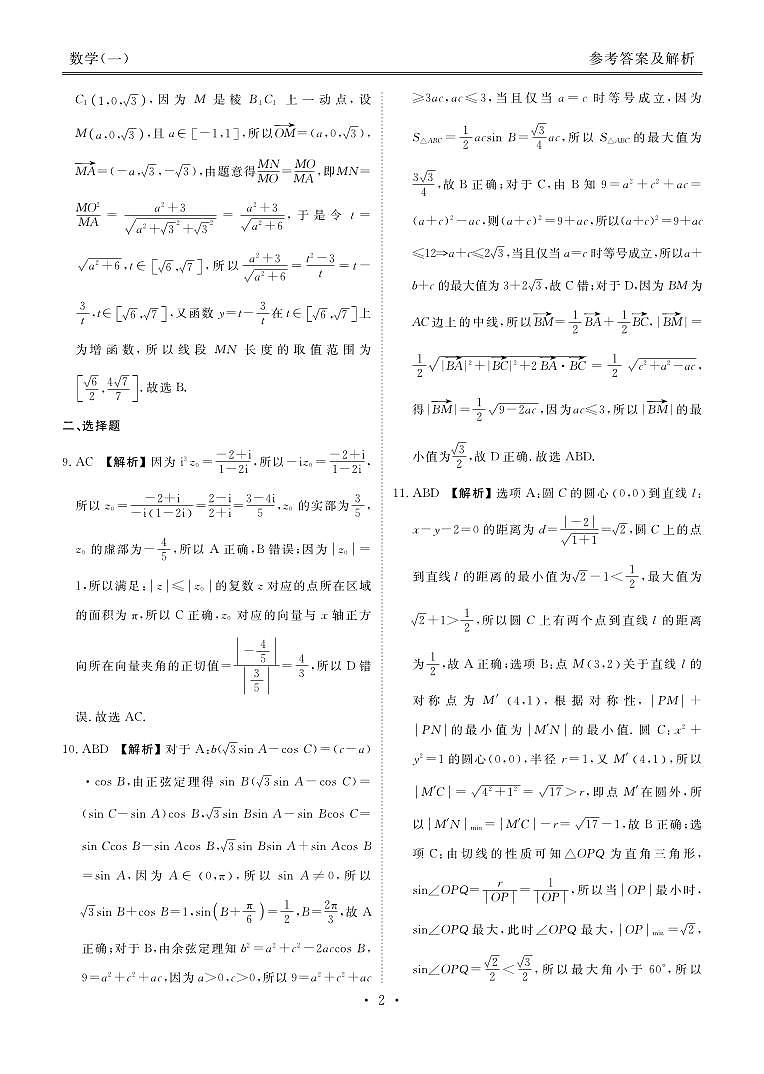 数学(一)
参考答案及解析
C₁(1,0,√3),因为 M 是棱 B₁C₁ 上一动点,设
M(a,0,√3),且 a∈[-1,1],所以\overrightarrow{OM}=(a,0,√3),
\overrightarrow{MA}=(-a,√3,-√3),由题意得\frac{MN}{MO}=\frac{MO}{MA},即MN=
\frac{MO²}{MA}=\frac{a²+3}{\sqrt{a²+√3²+√3²}}=\frac{a²+3}{\sqrt{a²+6}},于是令 t=
\sqrt{a²+6},t∈[√6,√7],所以\frac{a²+3}{\sqrt{a²+6}}=\frac{t²-3}{t}=t-
\frac{3}{t},t∈[√6,√7],又函数 y=t-\frac{3}{t}在 t∈[√6,√7]上
为增函数,所以线段 MN 长度的取值范围为
[\frac{√6}{2},\frac{4√7}{7}].故选 B.
二、选择题
9. AC 【解析】因为 i³z₀=\frac{-2+i}{1-2i},所以-iz₀=\frac{-2+i}{1-2i},
所以 z₀=\frac{-2+i}{-i(1-2i)}=\frac{2-i}{2+i}=\frac{3-4i}{5},z₀ 的实部为\frac{3}{5},
z₀ 的虚部为-\frac{4}{5},所以 A 正确,B 错误;因为|z₀|=
1,所以满足:|z|≤|z₀|的复数 z 对应的点所在区域
的面积为 π,所以 C 正确,z₀ 对应的向量与 x 轴正方
向所在向量夹角的正切值=\frac{|-\frac{4}{5}|}{|\frac{3}{5}|}=\frac{4}{3},所以 D 错
误.故选 AC.
10. ABD 【解析】对于 A:b(√3sin A-cos C)=(c-a)
·cos B,由正弦定理得 sin B(√3sin A-cos C)=
(sin C-sin A)cos B,√3sin Bsin A-sin Bcos C=
sin Ccos B-sin Acos B,√3sin Bsin A+sin Acos B
=sin A,因为 A∈(0,π),所以 sin A≠0,所以
√3sin B+cos B=1,sin(B+\frac{π}{6})=\frac{1}{2},B=\frac{2π}{3},故 A
正确;对于 B,由余弦定理知 b²=a²+c²-2accos B,
9=a²+c²+ac,因为 a>0,c>0,所以 9=a²+c²+ac
≥3ac,ac≤3,当且仅当 a=c 时等号成立,因为
S_{△ABC}=\frac{1}{2}acsin B=\frac{√3}{4}ac,所以 S_{△ABC}的最大值为
\frac{3√3}{4},故 B 正确;对于 C,由 B 知 9=a²+c²+ac=
(a+c)²-ac,则(a+c)²=9+ac,所以(a+c)²=9+ac
≤12⇒a+c≤2√3,当且仅当 a=c时等号成立,所以a+
b+c 的最大值为 3+2√3,故 C 错;对于 D,因为 BM为
AC边上的中线,所以\overrightarrow{BM}=\frac{1}{2}\overrightarrow{BA}+\frac{1}{2}\overrightarrow{BC},|\overrightarrow{BM}|=
\frac{1}{2}\sqrt{|\overrightarrow{BA}|²+|\overrightarrow{BC}|²+2\overrightarrow{BA}·\overrightarrow{BC}}=\frac{1}{2}\sqrt{c²+a²-ac},
得|\overrightarrow{BM}|=\frac{1}{2}\sqrt{9-2ac},因为ac≤3,所以|\overrightarrow{BM}|的最
小值为\frac{√3}{2},故 D 正确.故选 ABD.
11. ABD 【解析】选项 A:圆 C 的圆心(0,0)到直线 l:
x-y-2=0 的距离为 d=\frac{|-2|}{\sqrt{1+1}}=√2,圆 C 上的点
到直线 l 的距离的最小值为√2-1<\frac{1}{2},最大值为
√2+1>\frac{1}{2},所以圆 C 上有两个点到直线 l 的距离
为\frac{1}{2},故 A 正确;选项 B:点 M(3,2)关于直线 l 的
对称点为 M′(4,1),根据对称性,|PM|+
|PN|的最小值为|M′N|的最小值.圆 C:x²+
y²=1 的圆心(0,0),半径 r=1,又 M′(4,1),所以
|M′C|=\sqrt{4²+1²}=√17>r,即点 M′在圆外,所
以|M′N|_{min}=|M′C|-r=√17-1,故 B 正确;选
项 C:由切线的性质可知△OPQ 为直角三角形,
sin∠OPQ=\frac{r}{|OP|}=\frac{1}{|OP|},所以当|OP|最小时,
sin∠OPQ 最大,此时∠OPQ 最大,|OP|_{min}=√2,
sin∠OPQ=\frac{√2}{2}<\frac{√3}{2},所以最大角小于 60°,所以
· 2 ·